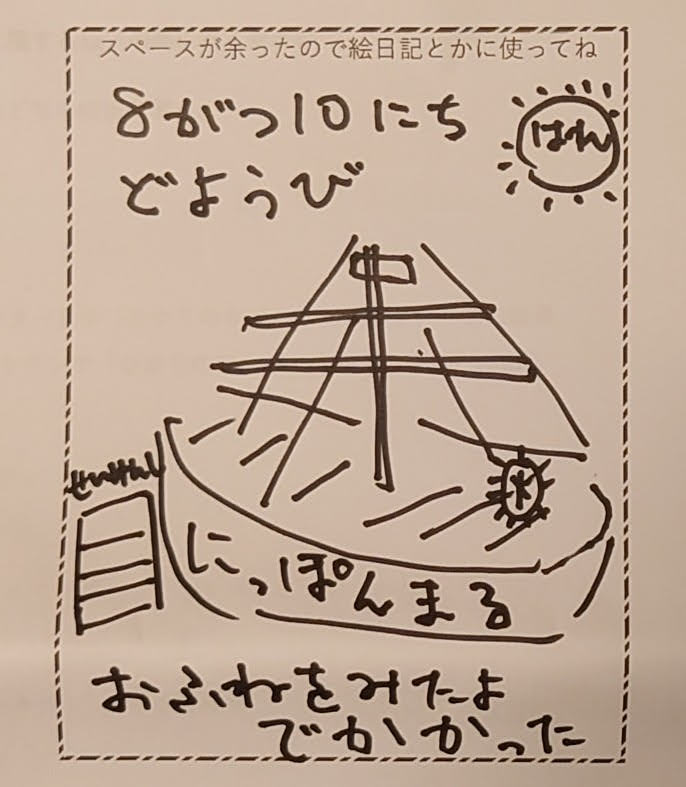 スペースが余ったので絵日記とかに使ってね
8がつ10にち
はれ
どようび
にっぽんまる
おふねをみたよ
でかかった